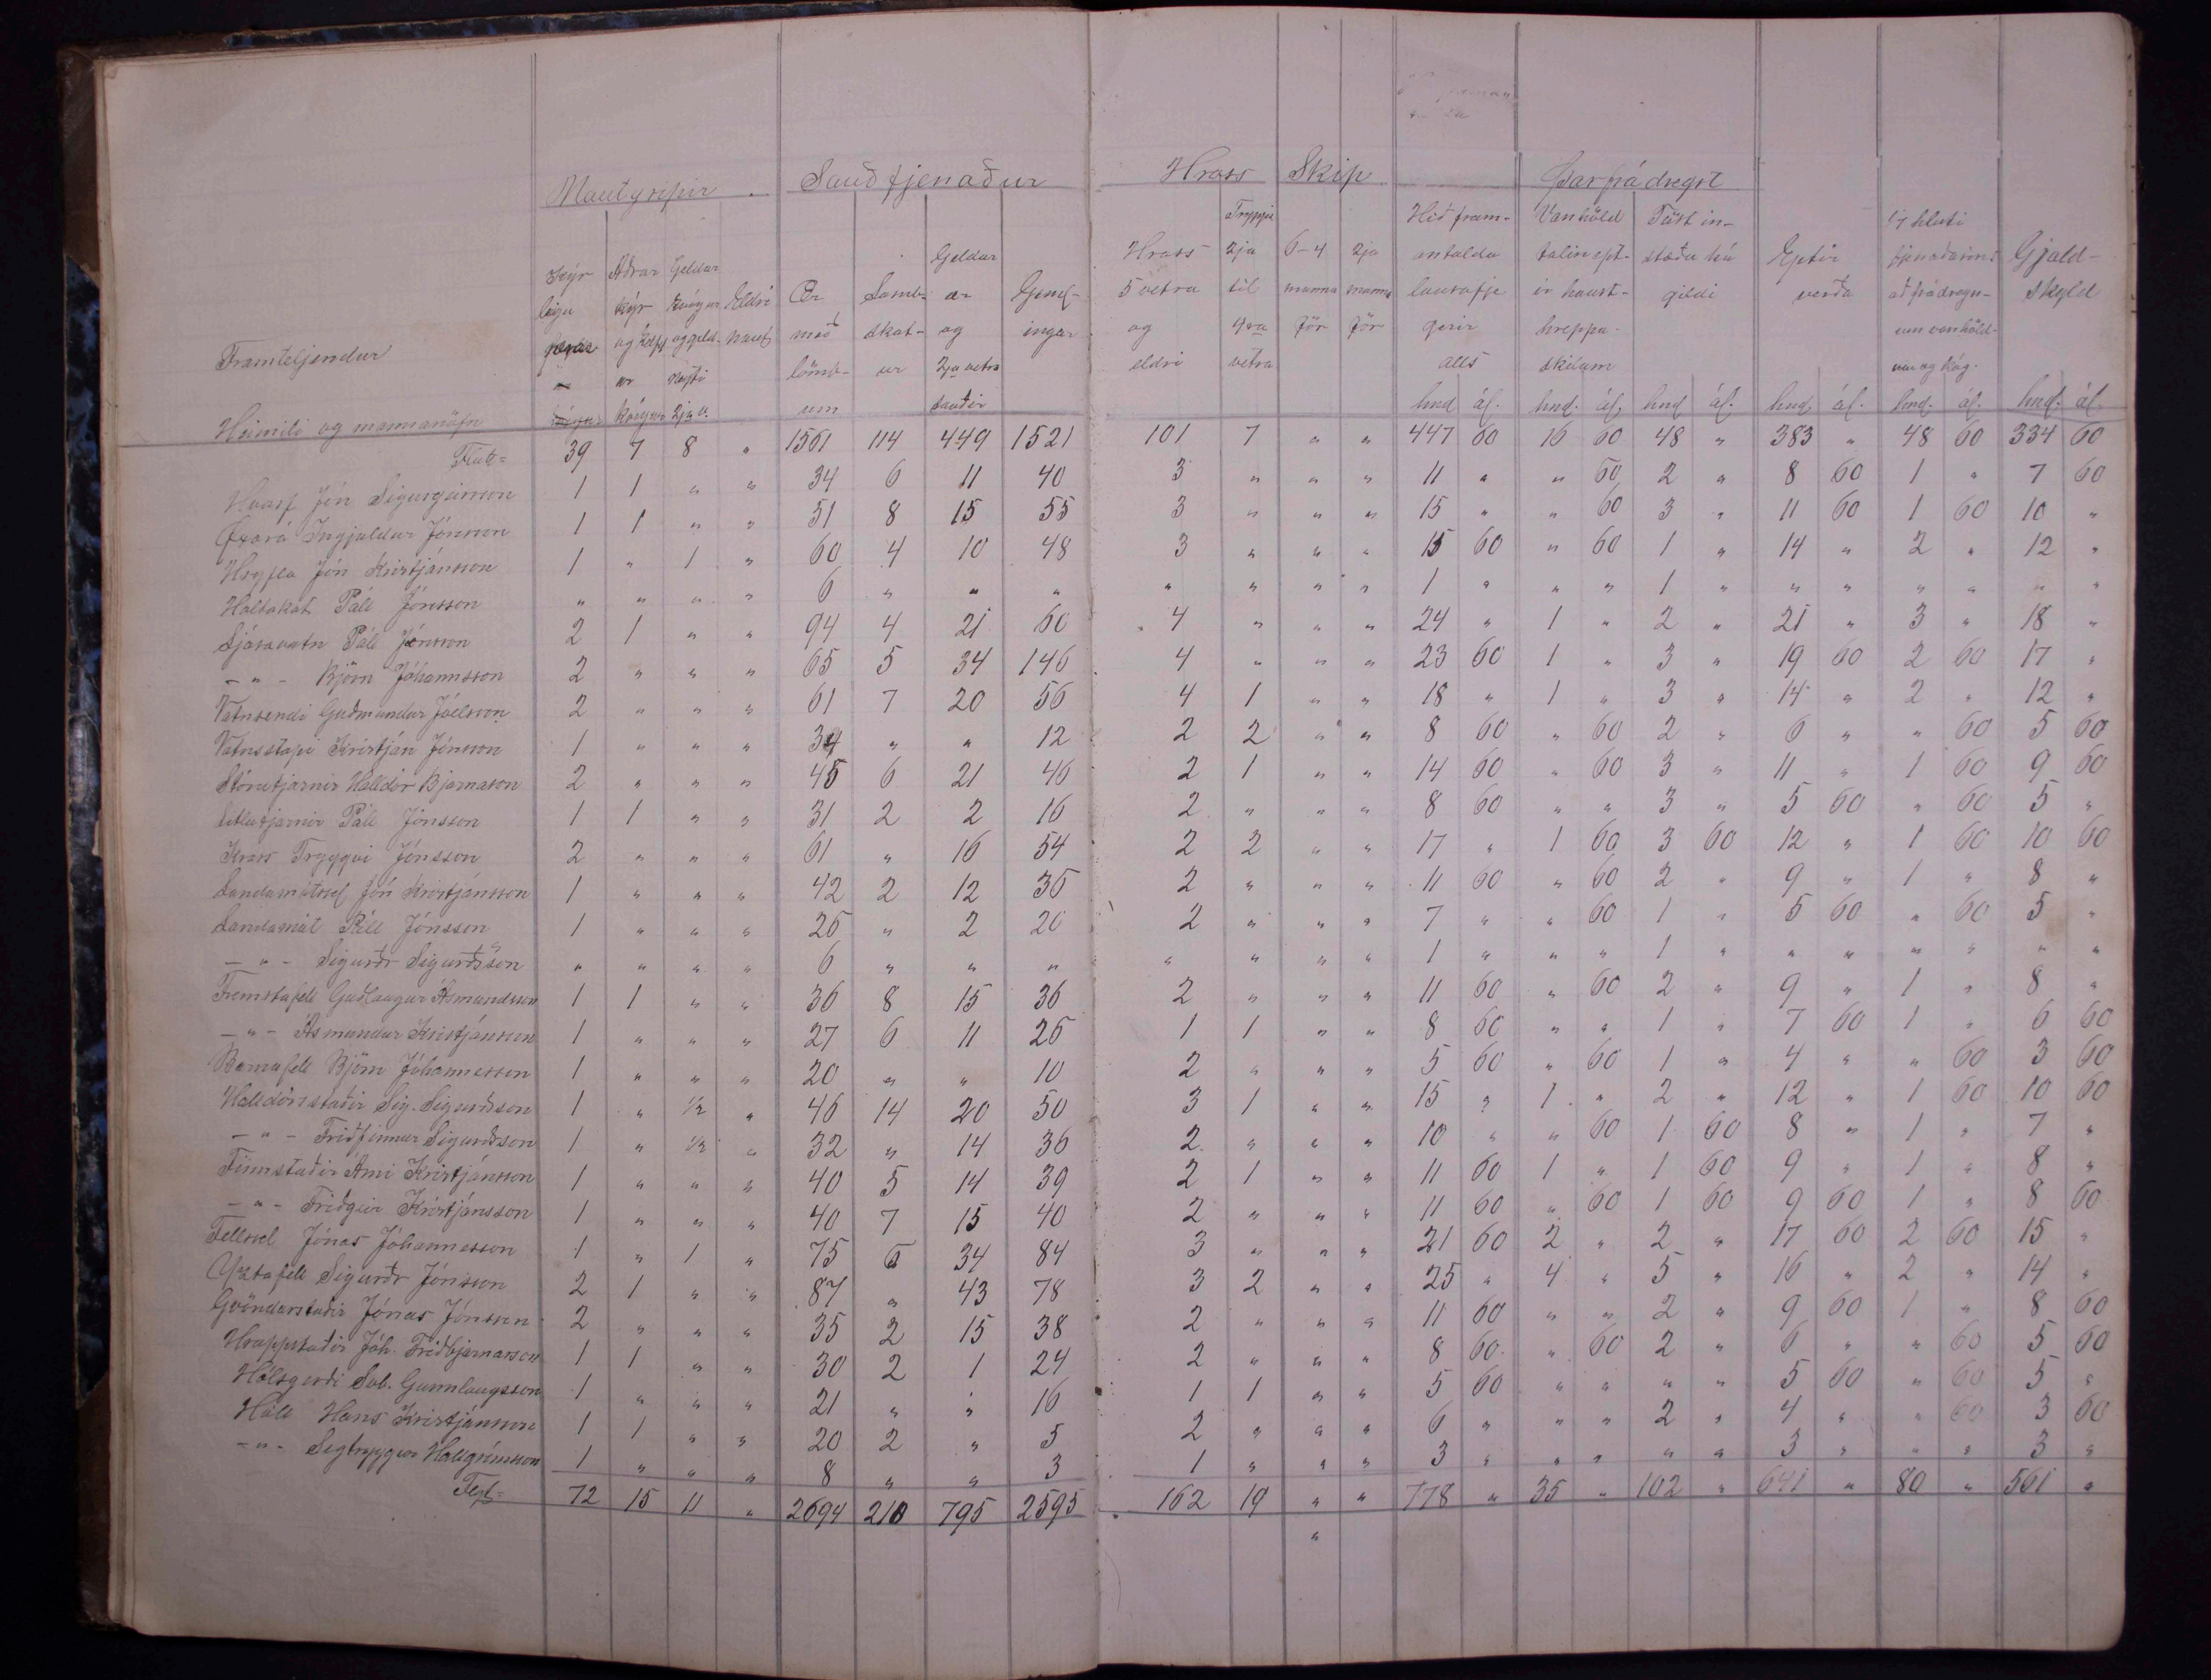 Nautgripir Sauðfjenaður Hross Skip Þarfrádregst
Framteljendur
Heimili og mannanöfn
Kýr leigu
Aðrar kýr og kelfdar kvígur
Geldar kvígur og geldneyti 2ja v.
Eldri naut
Ær með lömbum
Lambskatur
Geldar ær og 2ja vetra sauðir
Geml-ingar
Hross 5 vetra og eldri
Tryppi 2ja til 4ra vetra
6-4 manna för
2ja manna för
Hið fram-antalda lausafje gerir alls
Vanhöld talin ept-ir haust-hreppa-skilum
Tíðst in-stæðu kú gildi
Eptir verða
1/7 hluti fjenaðarins að frádregn-um vanhöld-um og kúg.
Gjald-skyld
hnd ál. hnd. ál. hnd ál. hnd. ál. hnd. ál. hnd. ál.
Flutt= 39 7 8 " 1561 114 449 1521 101 7 " " 447 60 16 60 48 " 383 " 48 60 334 60
Hvarf Jón Sigurgeirsson 1 1 " " 34 6 11 40 3 " " " 11 " " 60 2 " 8 60 1 " 7 60
Öxará Ingjaldur Jónsson 1 1 " " 51 8 15 55 3 " " " 15 " " 60 3 " 11 60 1 60 10 "
Hryfla Jón Kristjánsson 1 " 1 " 60 4 10 48 3 " " " 15 60 " 60 1 " 14 " 2 " 12 "
Holtakot Páll Jónsson " " " " 6 " " " " " " " 1 " " " 1 " " " " " " "
Ljósavatn Páll Jónsson 2 1 " " 94 4 21 60 4 " " " 24 " 1 " 2 " 21 " 3 " 18 "
- " - Björn Jóhannsson 2 " " " 65 5 34 146 4 " " " 23 60 1 " 3 " 19 60 2 60 17 "
Vatnsendi Guðmundur Jóelsson 2 " " " 61 7 20 56 4 1 " " 18 " 1 " 3 " 14 " 2 " 12 "
Vatnsstapi Kristján Jónsson 1 " " " 34 " " 12 2 2 " " 8 60 " 60 2 " 6 " " 60 5 60
Stórutjarnir Halldór Bjarnason 2 " " " 45 6 21 46 2 1 " " 14 60 " 60 3 " 11 " 1 60 9 60
Litlutjarnir Páll Jónsson 1 1 " " 31 2 2 16 2 " " " 8 60 " " 3 " 5 60 " 60 5 "
Kross Tryggvi Jónsson 2 " " " 61 " 16 54 2 2 " " 17 " 1 60 3 60 12 " 1 60 10 60
Landamótssel Jón Kristjánsson 1 " " " 42 2 12 35 2 " " " 11 60 " 60 2 " 9 " 1 " 8 "
Landamót Páll Jónsson 1 " " " 26 " 2 20 2 " " " 7 " " 60 1 " 5 60 " 60 5 "
- " - Sigurðr Sigurðsson " " " " 6 " " " " " " " 1 " " " 1 " " " " " " "
Fremstafell Guðlaugur Ásmundsson 1 1 " " 36 8 15 36 2 " " " 11 60 " 60 2 " 9 " 1 " 8 "
- " - Ásmundur Kristjánsson 1 " " " 27 6 11 26 1 1 " " 8 60 " " 1 " 7 60 1 " 6 60
Barnafell Björn Jóhannesson 1 " " " 20 " " 10 2 " " " 5 60 " 60 1 " 4 " " 60 3 60
Halldórsstaðir Sig. Sigurðsson 1 " 1/2 " 46 14 20 50 3 1 " " 15 " 1 " 2 " 12 " 1 60 10 60
- " - Friðfinnur Sigurðsson 1 " 1/2 " 32 " 14 36 2 " " " 10 " " 60 1 60 8 " 1 " 7 "
Finnstaðir Árni Kristjánsson 1 " " " 40 5 14 39 2 1 " " 11 60 1 " 1 60 9 " 1 " 8 "
- " - Friðgeir Kristjánsson 1 " " " 40 7 15 40 2 " " " 11 60 " 60 1 60 9 60 1 " 8 60
Fellssel Jónas Jóhannesson 1 " 1 " 75 6 34 84 3 " " " 21 60 2 " 2 " 17 60 2 60 15 "
Yztafell Sigurðr Jónsson 2 1 " " 87 " 43 78 3 2 " " 25 " 4 " 5 " 16 " 2 " 14 "
Gvöndarstaðir Jónas Jónsson 2 " " " 35 2 15 38 2 " " " 11 60 " " 2 " 9 60 1 " 8 60
Hrappstaðir Jóh. Friðbjarnarson 1 1 " " 30 2 1 24 2 " " " 8 60 " 60 2 " 6 " " 60 5 60
Hólsgerði Sub. Gunnlaugsson 1 " " " 21 " " 16 1 1 " " 5 60 " " " " 5 60 " 60 5 "
Hóll Hans Kristjánsson 1 1 " " 20 2 " 5 2 " " " 6 " " " 2 " 4 " " 60 3 60
- " - Sigtryggur Hallgrímsson 1 " " " 8 " " 3 1 " " " 3 " " " " " 3 " " " 3 "
Flyt= 72 15 11 " 2694 210 795 2595 162 19 " " 778 " 35 " 102 " 641 " 80 " 561 "
"